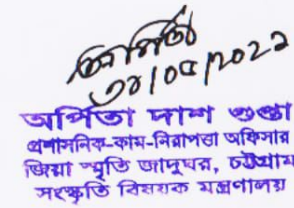 অর্পিতা
অর্পিতা দাশ গুপ্তা
প্রশাসনিক-কাম-নিরাপত্তা অফিসার
জিয়া স্মৃতি জাদুঘর, চট্টগ্রাম
সংস্কৃতি বিষয়ক মন্ত্রণালয়